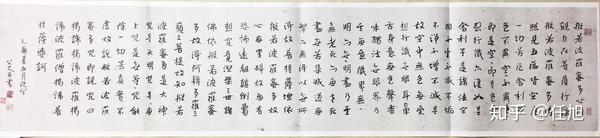 般若波羅蜜多心經
觀自在菩薩行深
般若波羅蜜多時
照見五蘊皆空度
一切苦厄舍利子
色不異空空不異
色色即是空空即是色
受想行識亦復如是
舍利子是諸法空
相不生不滅不垢
不淨不增不減是
故空中無色無受
想行識無眼耳鼻
舌身意無色聲香
味觸法無眼界乃
至無意識界無無
明亦無無明盡乃至
無老死亦無老死
盡無苦集滅道無
智亦無得以無所
得故菩提薩埵依
般若波羅蜜多故
心無罣礙無罣礙故無有
恐怖遠離顛倒夢
想究竟涅槃三世諸
佛依般若波羅蜜
多故得阿耨多羅
藐三菩提故知般若
波羅蜜多是大神
咒是大明咒是無
上咒是無等等咒能
除一切苦真實不
虛故說般若波羅
蜜多咒即說咒曰
揭諦揭諦波羅
揭諦波羅僧揭諦菩
提薩婆訶
知乎 @任旭